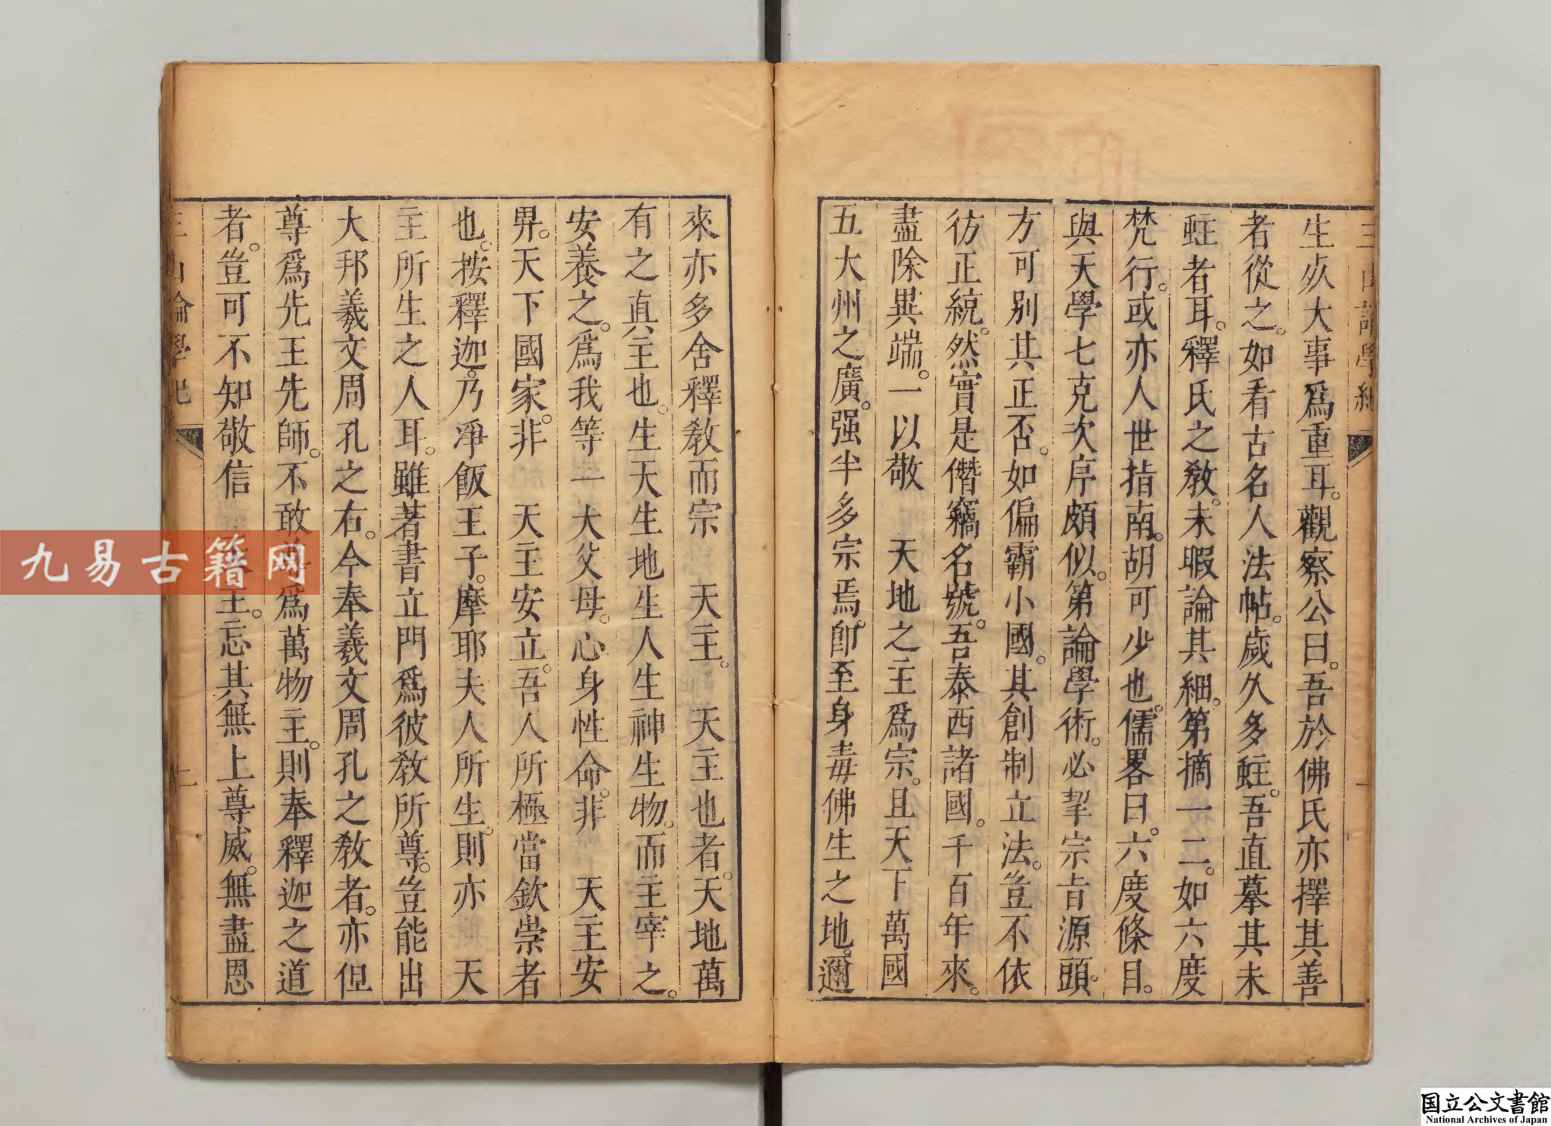 生㱕大事爲重耳。觀察公曰。吾於佛氏亦擇其善
者從之。如看古名人法帖。歲久多蛀。吾直摹其未
蛀者耳。釋氏之敎。未暇論其細。第摘一二。如六度
梵行。或亦人世指南。胡可少也。儒畧曰。六度條目。
與天學七克次序頗似。第論學術。必挈宗旨源頭。
方可別其正否。如偏霸小國。其創制立法。豈不依
彷正統。然實是僭竊名號。吾泰西諸國。千百年來。
盡除異端。一以敬 天地之主爲宗。且天下萬國
五大州之廣。强半多宗焉。卽至身毒佛生之地。邇
來亦多舍釋敎而宗 天主。 天主也者。天地萬
有之眞主也。生天生地生人生神生物。而主宰之。
安養之。爲我等一大父母。心身性命。非 天主安
畀。天下國家。非 天主安立。吾人所極當欽崇者
也。按釋迦。乃凈飯王子。摩耶夫人所生。則亦 天
主所生之人耳。雖著書立門爲彼敎所尊。豈能出
大邦羲文周孔之右。今奉羲文周孔之敎者。亦但
尊爲先王先師。不敢 爲萬物主。則奉釋迦之道
者。豈可不知敬信 主。忘其無上尊威。無盡恩
三山論學紀
二
九易古籍网
国立公文書館
National Archives of Japan